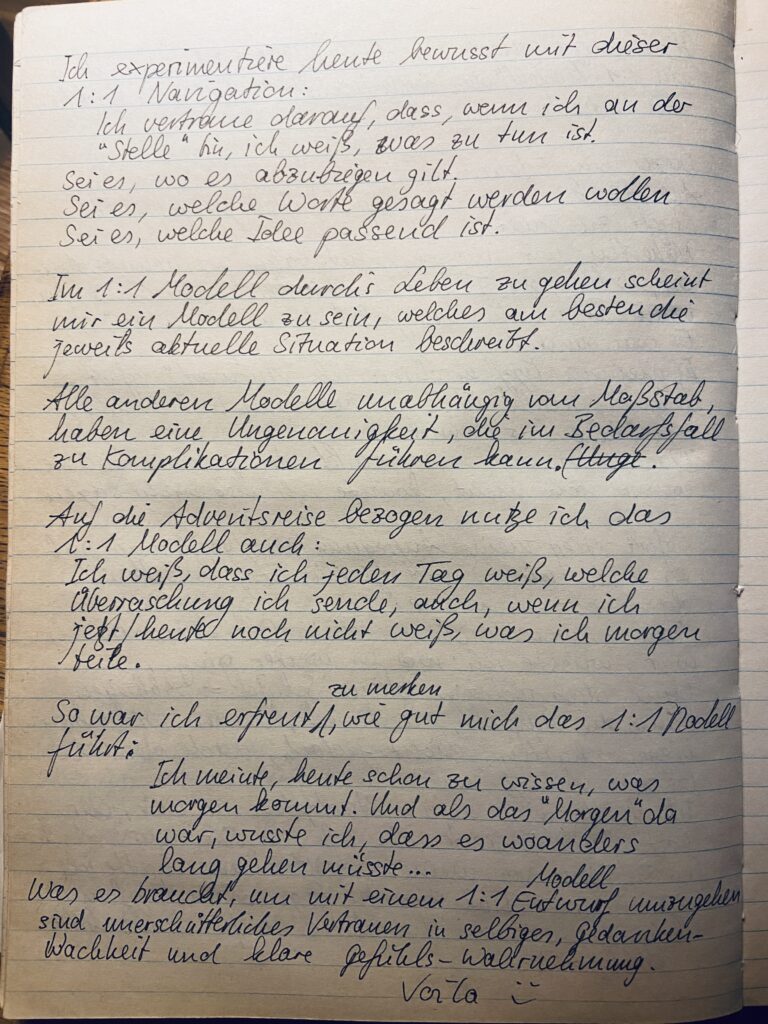 Ich experimentiere heute bewusst mit dieser
1:1 Navigation:
Ich vertraue darauf, dass, wenn ich an der
"Stelle" bin, ich weiß, was zu tun ist.
Sei es, wo es abzubiegen gilt.
Sei es, welche Worte gesagt werden wollen
Sei es, welche Idee passend ist.
Im 1:1 Modell durch's Leben zu gehen scheint
mir ein Modell zu sein, welches am besten die
jeweils aktuelle Situation beschreibt.
Alle anderen Modelle unabhängig vom Maßstab,
haben eine Ungenauigkeit, die im Bedarfsfall
zu Komplikationen führen kann. (Unge.
Auf die Adventsreise bezogen nutze ich das
1:1 Modell auch:
Ich weiß, dass ich jeden Tag weiß, welche
Überraschung ich sende, auch, wenn ich
jetzt/heute noch nicht weiß, was ich morgen
teile.
zu merken
So war ich erfreut, wie gut mich das 1:1 Modell
führt:
Ich meinte, heute schon zu wissen, was
morgen kommt. Und als das "Morgen" da
war, wusste ich, dass es woanders
lang gehen müsste...
Modell
Was es braucht, um mit einem 1:1 Entwurf umzugehen
sind unerschütterliches Vertrauen in selbiges, gedanken-
Wachheit und klare gefühls-Wahrnehmung.
Voila